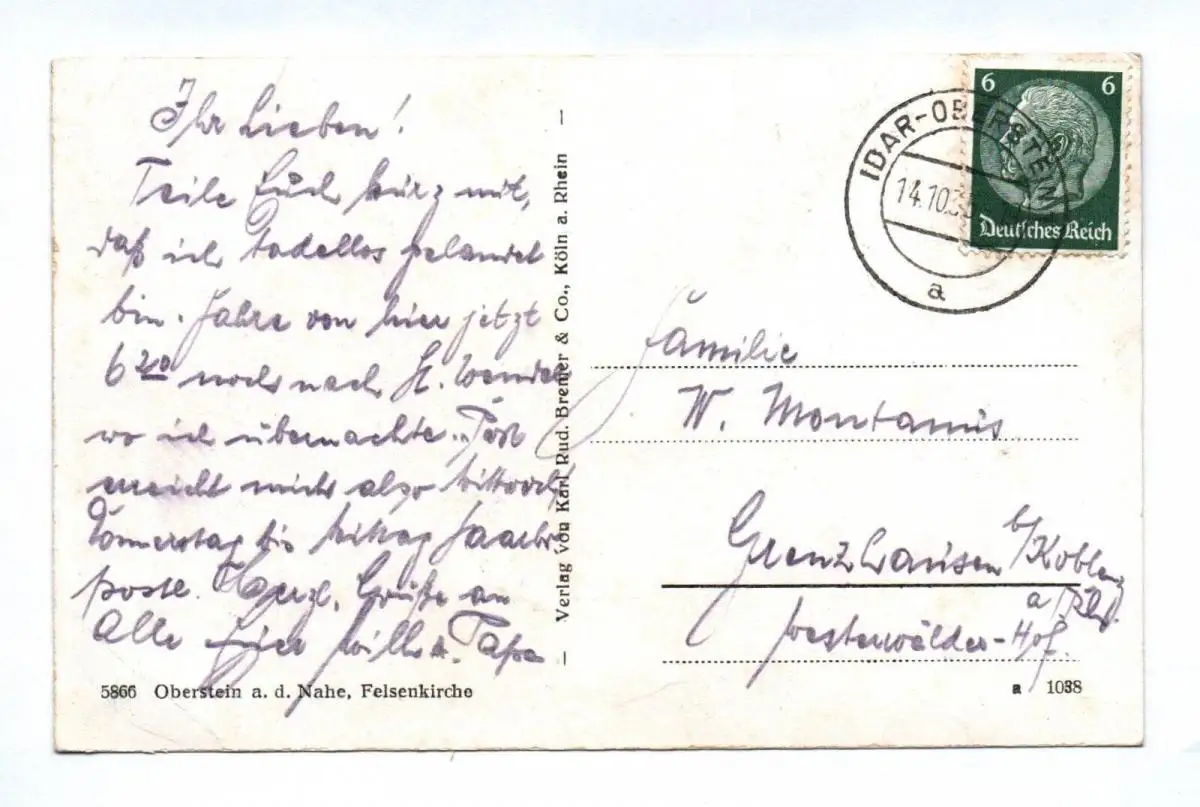 Ihr Lieben!
Teile Euch kurz mit,
daß ich tadellos gelandet
bin. Fahre von hier jetzt
6 20 noch nach St. Wendel
wo ich übernachte. Post
erreicht mich also Mittwoch
Donnerstag bis Mittag Saarbr.
postl. Herzl. Grüße an
Alle Euer Papa
5866 Oberstein a. d. Nahe, Felsenkirche
Verlag von Karl Rud. Bremer & Co., Köln a. Rhein
IDAR-OBERSTEIN
14.10.3
a
6 6
Deutsches Reich
Familie
W. Montanus
Grenzhausen b/Koblenz
a/Rh.
Westerwälder-Hof.
a 1038